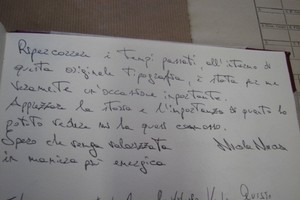 Ripercorrere i tempi passati, all'interno di
questa originale tipografia, è stata per me
veramente un'occasione importante.
Apprezzar la storia e l'importanza di quanto ho
potuto vedere mi ha quasi commosso.
Spero che venga valorizzata
in maniera più energica